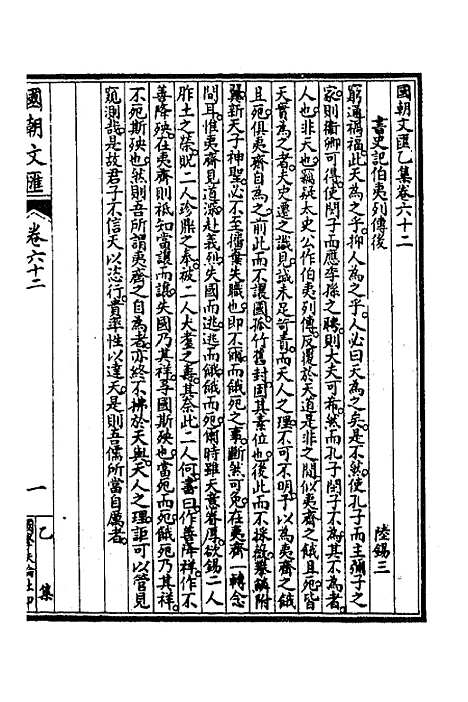 國朝文匯乙集卷六十二
書史記伯夷列傳後
陸錫三
窮通禍福此天為之乎抑人為之乎人必曰天為之矣是不然使孔子而主彌子之
家則衞卿可得使閔子而應季孫之聘則大夫可希然而孔子閔子不為其不為者
人也非天也竊疑太史公作伯夷列傳反覆於天道是非之間似夷齊之餓且死皆
天實為之者夫史遷之識見誠未足訾責而天人之理不可不明予以為夷齊之餓
且死俱夷齊自為之前此而不讓國孤竹舊封固其素位也後此而不採薇攀鱗附
翼新天子神聖必不至擯棄失職也即不爾而餓死之事斷然可免在夷齊一轉念
間耳惟夷齊見道深赴義烈失國而逃逃而餓餓而死爾時雖天意眷厚欲錫二人
胙土之榮貺二人珍鼎之奉被二人大耋之壽其奈此二人何書曰作善降祥作不
善降殃在夷齊則祇知當讓而讓失國乃其祥爭國斯殃也當死而死餓死乃其祥
不死斯殃也然則吾所謂夷齊之自為者亦終不拂於天與天人之理詎可以管見
窺測哉是故君子不信天以恣行貴率性以達天是則吾儒所當自厲者
國朝文匯
卷六十二
一
乙集
國學扶輪社印